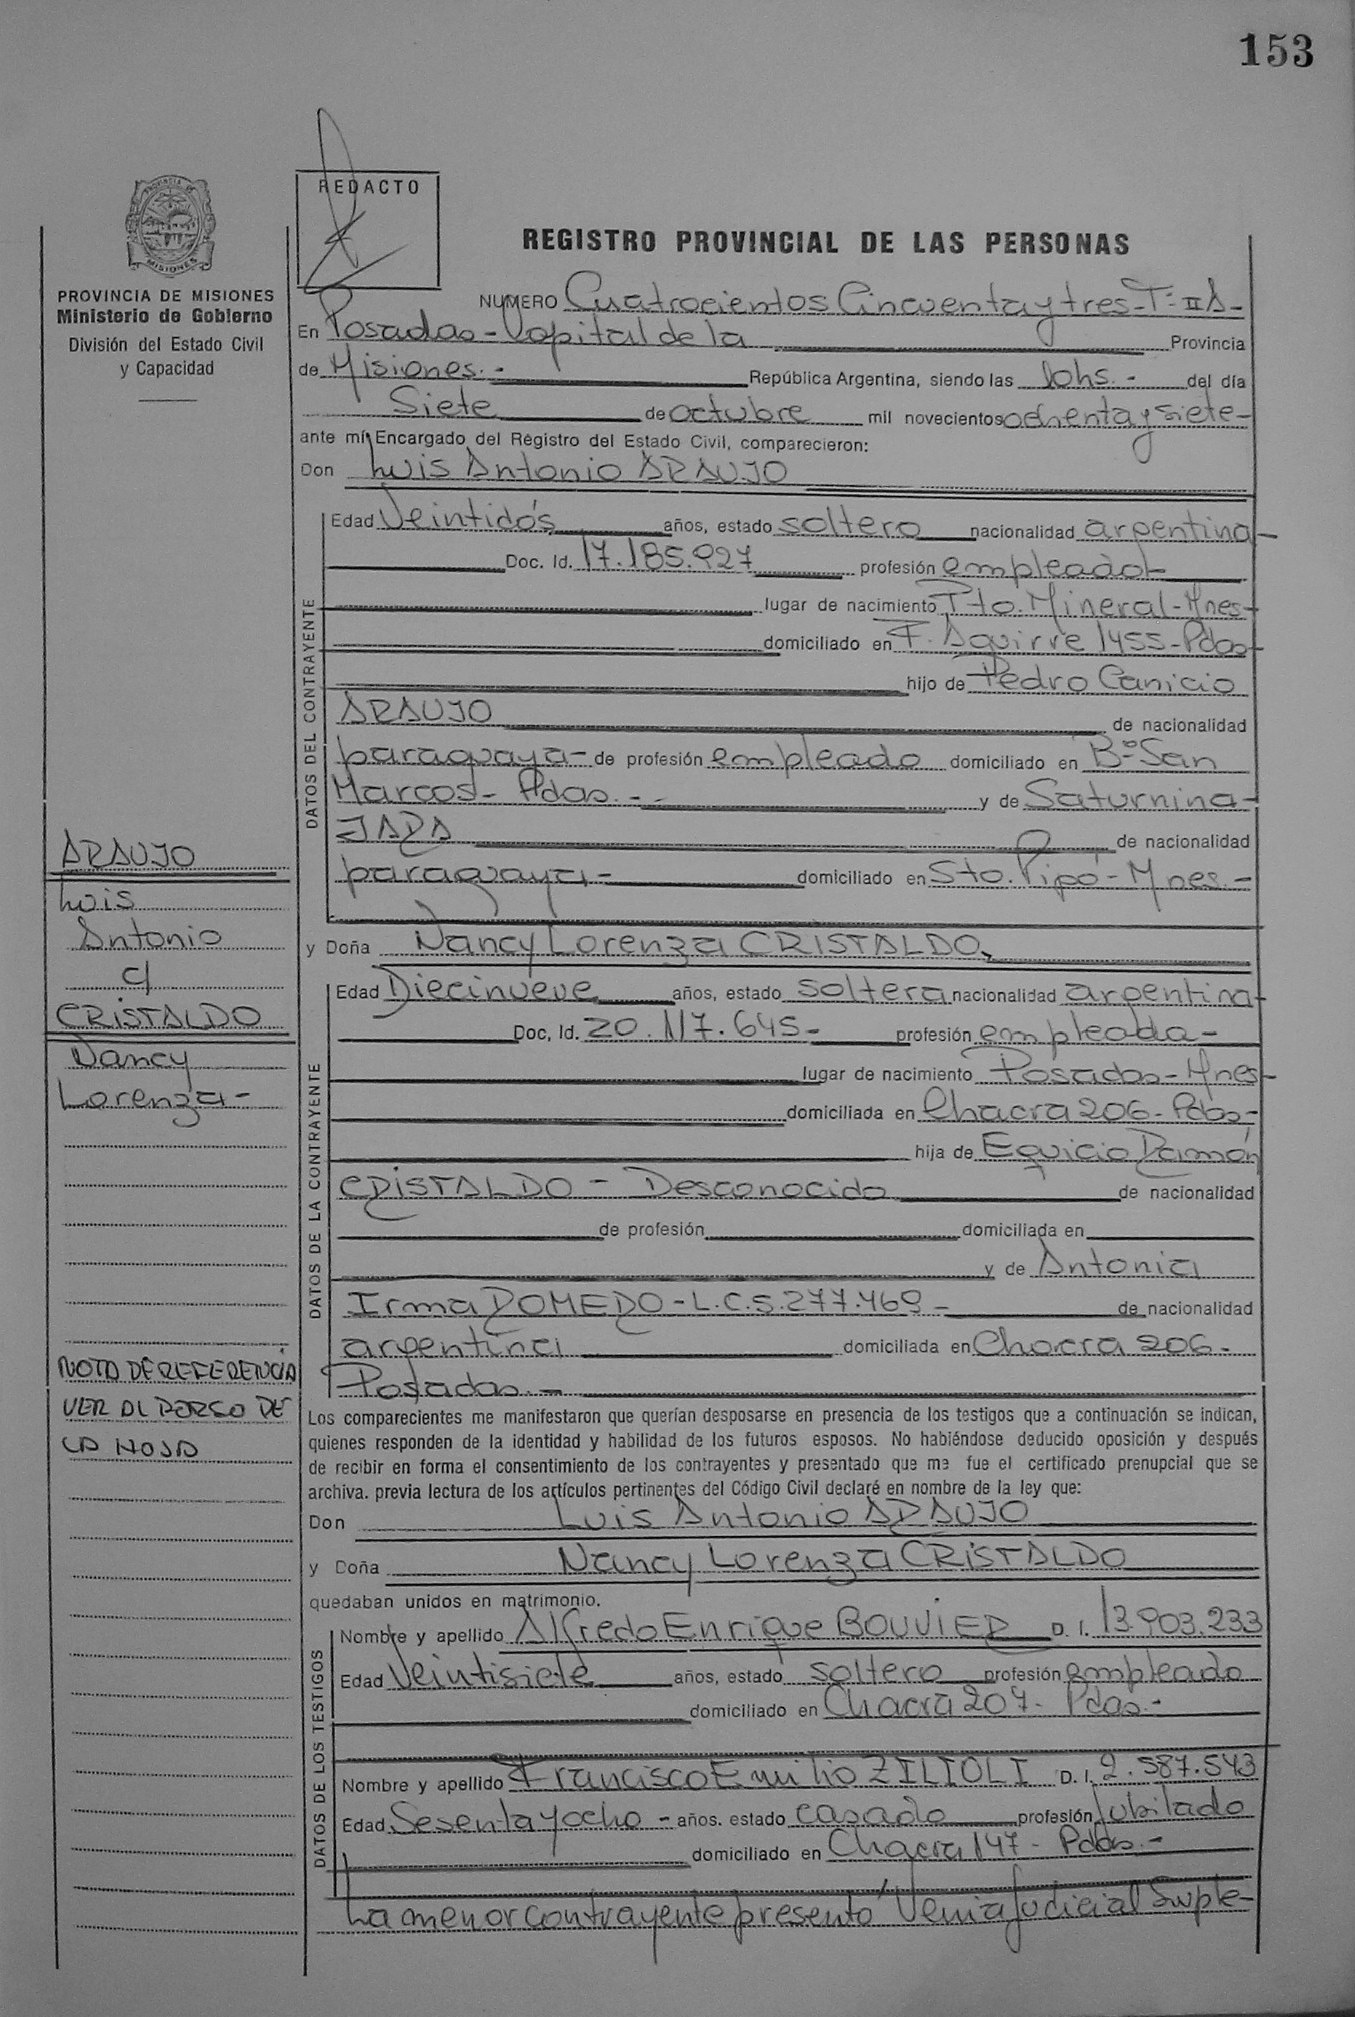 153
REDACTO
PROVINCIA DE MISIONES
Ministerio de Gobierno
División del Estado Civil
y Capacidad
REGISTRO PROVINCIAL DE LAS PERSONAS
NUMERO Cuatrocientos Cincuenta y tres - T: II A -
En Posadas - Capital de la Provincia
de Misiones. - República Argentina, siendo las 10hs. - del día
Siete de octubre mil novecientos ochenta y siete -
ante mí Encargado del Registro del Estado Civil, comparecieron:
Don Luis Antonio ARAUJO
DATOS DEL CONTRAYENTE
Edad Veintidós años, estado soltero nacionalidad argentina -
Doc. Id. 17.185.927 profesión empleado -
lugar de nacimiento Pto. Mineral - Mnes -
domiciliado en F. Aguirre 1455 - Pdas -
hijo de Pedro Canicio
ARAUJO de nacionalidad
paraguaya - de profesión empleado domiciliado en Bº San
Marcos - Pdas. - - y de Saturnina -
JARA de nacionalidad
paraguaya - domiciliado en Sto. Pipó - Mnes. -
y Doña Nancy Lorenza CRISTALDO,
DATOS DE LA CONTRAYENTE
Edad Diecinueve años, estado soltera nacionalidad argentina -
Doc, Id. 20.117.645 - profesión empleada -
lugar de nacimiento Posadas - Mnes -
domiciliada en Chacra 206 - Pdas -
hija de Equicio Ramón
CRISTALDO - Desconocido de nacionalidad
de profesión domiciliada en
y de Antonia
Irma ROMERO - L.C. 5.277.469 - de nacionalidad
argentina domiciliada en Chacra 206 -
Posadas. -
Los comparecientes me manifestaron que querían desposarse en presencia de los testigos que a continuación se indican,
quienes responden de la identidad y habilidad de los futuros esposos. No habiéndose deducido oposición y después
de recibir en forma el consentimiento de los contrayentes y presentado que me fue el certificado prenupcial que se
archiva. previa lectura de los artículos pertinentes del Código Civil declaré en nombre de la ley que:
Don Luis Antonio ARAUJO
y Doña Nancy Lorenza CRISTALDO
quedaban unidos en matrimonio.
DATOS DE LOS TESTIGOS
Nombre y apellido Alfredo Enrique BOUVIER D. I. 13.903.233
Edad Veintisiete años, estado soltero profesión empleado
domiciliado en Chacra 207 - Pdas. -
Nombre y apellido Francisco Emilio ZILIOLI D. I. 2.587.543
Edad Sesenta y ocho - años. estado casado profesión Jubilado
domiciliado en Chacra 147 - Pdas. -
La menor contrayente presentó Venia Judicial Suple-
ARAUJO
Luis
Antonio
c/
CRISTALDO
Nancy
Lorenza -
NOTA DE REFERENCIA
VER AL DORSO DE
LA HOJA